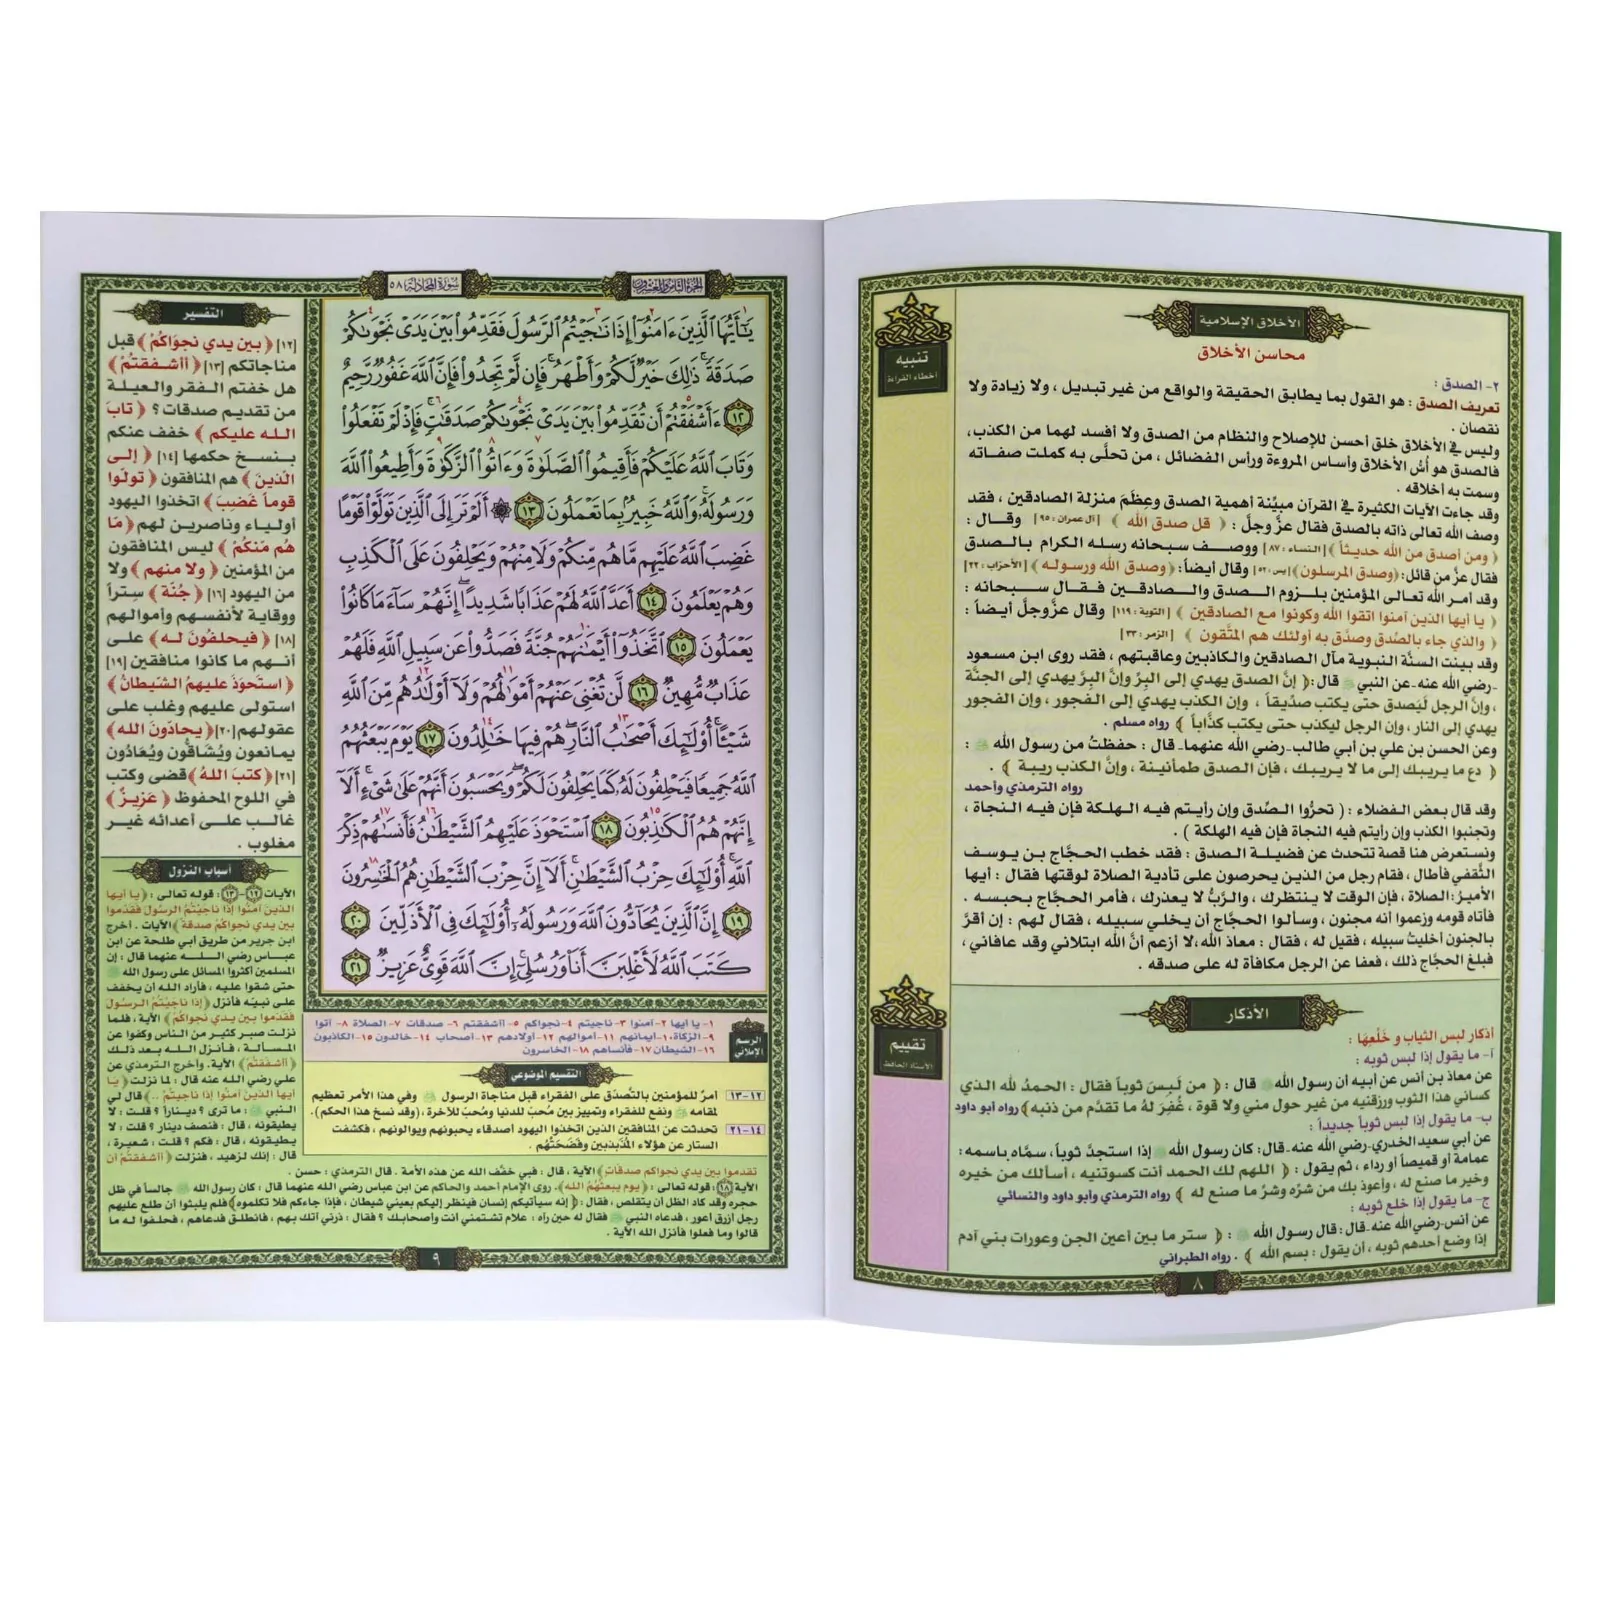 الأخلاق الإسلامية
محاسن الأخلاق
٢- الصدق :
تعريف الصدق : هو القول بما يطابق الحقيقة والواقع من غير تبديل ، ولا زيادة ولا
نقصان .
وليس في الأخلاق خلق أحسن للإصلاح والنظام من الصدق ولا أفسد لهما من الكذب،
فالصدق هو أسّ الأخلاق وأساس المروءة ورأس الفضائل ، من تحلَّى به كملت صفاته
وسمت به أخلاقه .
وقد جاءت الآيات الكثيرة في القرآن مبيِّنة أهمية الصدق وعِظَمَ منزلة الصادقين ، فقد
وصف الله تعالى ذاته بالصدق فقال عزَّ وجلَّ : ﴿ قل صدق الله ﴾ [آل عمران : ٩٥] وقـال :
﴿ ومن أصدق من الله حديثاً ﴾ [النساء : ٨٧] ووصـف سبحانه رسله الكرام بالـصدق
فقال عزَّ من قائل: ﴿وصدق المرسلون﴾ [يس: ٥٢] وقال أيضاً: ﴿وصدق الله ورسولـه ﴾ [الأحزاب : ٢٢]
وقد أمر الله تعالى المؤمنين بلزوم الصدق والـصادقين فـقـال سبحانه :
﴿ يا أيها الذين آمنوا اتقوا الله وكونوا مع الصادقين ﴾ [التوبة : ١١٩] وقال عزَّوجلَّ أيضاً :
﴿ والذي جاء بالصِّدق وصدَّق به أولئك هم المتَّقون ﴾ [الزمر : ٣٣]
وقد بينت السنَّة النبوية مآل الصادقين والكاذبين وعاقبتهم ، فقد روى ابن مسعود
-رضي الله عنه- عن النبي ﷺ قال: ﴿ إنَّ الصدق يهدي إلى البِرِّ وإنَّ البِرَّ يهدي إلى الجنَّة
، وإنَّ الرجل لَيَصدق حتى يكتب صدِّيقاً ، وإن الكذب يهدي إلى الفجور ، وإن الفجور
يهدي إلى النار ، وإن الرجل ليكذب حتى يكتب كذَّاباً ﴾ رواه مسلم .
وعن الحسن بن علي بن أبي طالب-رضي الله عنهما- قال : حفظتُ من رسول الله ﷺ :
﴿ دع ما يريبك إلى ما لا يريبك ، فإن الصدق طمأنينة ، وإنَّ الكذب ريبة ﴾ .
رواه الترمذي وأحمد
وقد قال بعض الفضلاء : ( تحرَّوا الصِّدق وإن رأيتم فيه الهلكة فإن فيه النجاة ،
وتجنبوا الكذب وإن رأيتم فيه النجاة فإن فيه الهلكة ) .
ونستعرض هنا قصة تتحدث عن فضيلـة الصدق : فقد خطب الحجَّاج بن يوسف
الثَّقفي فأطال ، فقام رجل من الذين يحرصون على تأدية الصلاة لوقتها فقال : أيها
الأمير: الصلاة ، فإن الوقت لا ينتظرك ، والربُّ لا يعذرك ، فأمر الحجَّاج بحبسه .
فأتاه قومه وزعموا أنه مجنون ، وسألوا الحجَّاج أن يخلي سبيله ، فقال لهم : إن أقرَّ
بالجنون أخليتُ سبيله ، فقيل له ، فقال : معاذ الله، لا أزعم أنَّ الله ابتلاني وقد عافاني ،
فبلغ الحجَّاج ذلك ، فعفا عن الرجل مكافأة له على صدقه .
الأذكار
أذكار لبس الثياب و خَلْعِهَا :
أ- ما يقول إذا لبس ثوبه :
عن معاذ بن أنس عن أبيه أن رسول الله ﷺ قال : ﴿ من لَبِسَ ثوباً فقال : الحمدُ لله الذي
كساني هذا الثوب ورزقنيه من غير حول مني ولا قوة ، غُفِرَ لهُ ما تقدَّم من ذنبه﴾ رواه أبو داود
ب- ما يقول إذا لبس ثوباً جديداً :
عن أبي سعيد الخدري-رضي الله عنه- قال: كان رسول الله ﷺ إذا استجدَّ ثوباً ، سمَّاه باسمه :
عمامة أو قميصاً أو رداء ، ثم يقول : ﴿ اللهم لك الحمد أنت كسوتنيه ، أسألك من خيره
وخير ما صنع له ، وأعوذ بك من شرِّه وشرِّ ما صنع له ﴾ رواه الترمذي وأبو داود والنسائي
ج- ما يقول إذا خلع ثوبه :
عن أنس-رضي الله عنه- قال: قال رسول الله ﷺ : ﴿ ستر ما بين أعين الجن وعورات بني آدم
إذا وضع أحدهم ثوبه ، أن يقول : بسم الله ﴾ . رواه الطبراني
تنبيه
أخطاء القراءة
تقييم
الأستاذ الحافظ
٨
الجزء الثامن والعشرون
سورة المجادلة ٥٨
يَٰٓأَيُّهَا ٱلَّذِينَ ءَامَنُوٓا۟ إِذَا نَٰجَيْتُمُ ٱلرَّسُولَ فَقَدِّمُوا۟ بَيْنَ يَدَىْ نَجْوَىٰكُمْ
صَدَقَةً ۚ ذَٰلِكَ خَيْرٌ لَّكُمْ وَأَطْهَرُ ۚ فَإِن لَّمْ تَجِدُوا۟ فَإِنَّ ٱللَّهَ غَفُورٌ رَّحِيمٌ
١٢ ءَأَشْفَقْتُمْ أَن تُقَدِّمُوا۟ بَيْنَ يَدَىْ نَجْوَىٰكُمْ صَدَقَٰتٍ ۚ فَإِذْ لَمْ تَفْعَلُوا۟
وَتَابَ ٱللَّهُ عَلَيْكُمْ فَأَقِيمُوا۟ ٱلصَّلَوٰةَ وَءَاتُوا۟ ٱلزَّكَوٰةَ وَأَطِيعُوا۟ ٱللَّهَ
وَرَسُولَهُۥ ۚ وَٱللَّهُ خَبِيرٌۢ بِمَا تَعْمَلُونَ ١٣ ۞ أَلَمْ تَرَ إِلَى ٱلَّذِينَ تَوَلَّوْا۟ قَوْمًا
غَضِبَ ٱللَّهُ عَلَيْهِم مَّا هُم مِّنكُمْ وَلَا مِنْهُمْ وَيَحْلِفُونَ عَلَى ٱلْكَذِبِ
وَهُمْ يَعْلَمُونَ ١٤ أَعَدَّ ٱللَّهُ لَهُمْ عَذَابًا شَدِيدًا ۖ إِنَّهُمْ سَآءَ مَا كَانُوا۟
يَعْمَلُونَ ١٥ ٱتَّخَذُوٓا۟ أَيْمَٰنَهُمْ جُنَّةً فَصَدُّوا۟ عَن سَبِيلِ ٱللَّهِ فَلَهُمْ
عَذَابٌ مُّهِينٌ ١٦ لَّن تُغْنِىَ عَنْهُمْ أَمْوَٰلُهُمْ وَلَآ أَوْلَٰدُهُم مِّنَ ٱللَّهِ
شَيْـًٔا ۚ أُو۟لَٰٓئِكَ أَصْحَٰبُ ٱلنَّارِ ۖ هُمْ فِيهَا خَٰلِدُونَ ١٧ يَوْمَ يَبْعَثُهُمُ
ٱللَّهُ جَمِيعًا فَيَحْلِفُونَ لَهُۥ كَمَا يَحْلِفُونَ لَكُمْ ۖ وَيَحْسَبُونَ أَنَّهُمْ عَلَىٰ شَىْءٍ ۚ أَلَآ
إِنَّهُمْ هُمُ ٱلْكَٰذِبُونَ ١٨ ٱسْتَحْوَذَ عَلَيْهِمُ ٱلشَّيْطَٰنُ فَأَنسَىٰهُمْ ذِكْرَ
ٱللَّهِ ۚ أُو۟لَٰٓئِكَ حِزْبُ ٱلشَّيْطَٰنِ ۚ أَلَآ إِنَّ حِزْبَ ٱلشَّيْطَٰنِ هُمُ ٱلْخَٰسِرُونَ
١٩ إِنَّ ٱلَّذِينَ يُحَآدُّونَ ٱللَّهَ وَرَسُولَهُۥٓ أُو۟لَٰٓئِكَ فِى ٱلْأَذَلِّينَ ٢٠
كَتَبَ ٱللَّهُ لَأَغْلِبَنَّ أَنَا۠ وَرُسُلِىٓ ۚ إِنَّ ٱللَّهَ قَوِىٌّ عَزِيزٌ ٢١
الرسم
الإملائي
١- يا أيها ٢- آمنوا ٣- ناجيتم ٤- نجواكم ٥- أأشفقتم ٦- صدقات ٧- الصلاة ٨- آتوا
٩- الزكاة ١٠- أيمانهم ١١- أموالهم ١٢- أولادهم ١٣- أصحاب ١٤- خالدون ١٥- الكاذبون
١٦- الشيطان ١٧- فأنساهم ١٨- الخاسرون
التقسيم الموضوعي
١٢-١٣ أمرٌ للمؤمنين بالتَّصدّق على الفقراء قبل مناجاة الرسول ﷺ وفي هذا الأمر تعظيم
لمقامه ونفع للفقراء وتمييز بين مُحبّ للدنيا ومُحبّ للآخرة، (وقد نسخ هذا الحكم).
١٤-٢١ تحدثت عن المنافقين الذين اتخذوا اليهود أصدقاء يحبونهم ويوالونهم ، فكشفت
الستار عن هؤلاء المُذَبْذَبين وفَضَحَتْهُم .
التفسير
[١٢] ﴿ بين يدي نجواكُمْ ﴾ قبل
مناجاتكم [١٣] ﴿ أأشـفـقتُـمْ ﴾
هل خفتم الفقر والعيلة
من تقديم صدقات ؟ ﴿ تابَ
الـلـه عليكم ﴾ خفف عنكم
بـنـسـخ حكمها [١٤] ﴿ إلى
الّذينَ ﴾ هم المنافقون ﴿ تولّوا
قوماً غَضِبَ ﴾ اتخذوا اليهود
أوليـاء وناصرين لهم ﴿ مَا
هُم مّنكُمْ ﴾ ليس المنافقون
من المؤمنين ﴿ ولا منهم ﴾ ولا
من اليهود [١٦] ﴿ جُنّة ﴾ ستراً
ووقاية لأنفسهم وأموالهم
[١٨] ﴿ فيحلفُونَ لـه ﴾ علـى
أنـهـم ما كانوا منافقين [١٩]
﴿ استَحوَذَ عليهمُ الشّيطانُ ﴾
استولى عليهم وغلب على
عقولهم [٢٠] ﴿ يحادّونَ الله ﴾
يمانعون ويُشَاقُّون ويُعَادُون
[٢١] ﴿ كتبَ اللهُ ﴾ قضى وكتب
في اللوح المحفوظ ﴿ عَزِيزٌ ﴾
غالب علـى أعدائه غـيـر
مغلوب .
أسباب النزول
الآيات (١٢)-(١٣) : قوله تعالى : ﴿ يا أيها
الذين آمنوا إذا ناجيتُمُ الرسولَ فقدّموا
بين يدي نجواكُمْ صدقةً ﴾ الآيات . أخرج
ابن جرير من طريق أبي طلحة عن ابن
عباس رضي اللـه عنهما قال : إن
المسلمين أكثروا المسائل على رسول الله ﷺ
حتى شقوا عليه ، فأراد الله أن يخفف
على نبيّه فأنزل ﴿ إذا ناجَيتُمُ الرسُولَ
فقدّموا بين يدي نجواكُمْ ﴾ الآية ، فلما
نزلت صبر كثير من الناس وكفوا عن
المسألة ، فأنزل الله بعد ذلك
﴿ أأشفقتُمْ ﴾ الآية. وأخرج الترمذي عن
علي رضي الله عنه قال : لما نزلت ﴿ يا
أيها الذين آمنوا إذا ناجَيتُمْ ..﴾ قال لي
النبي ﷺ : ما ترى ؟ ديناراً ؟ قلت : لا
يطيقونه ، قال : فنصف دينار ؟ قلت : لا
يطيقونه ، قال : فكم ؟ قلت : شعيرة ،
قال : إنك لزهيد ، فنزلت ﴿ أأشفقتُمْ أن
تقدموا بين يدي نجواكم صدقات ﴾ الآية ، قال : فبي خفَّف الله عن هذه الأمة . قال الترمذي : حسن .
الآية (١٨) : قوله تعالى : ﴿ يوم يبعثُهُمُ الله ﴾. روى الإمام أحمد والحاكم عن ابن عباس رضي الله عنهما قال : كان رسول الله ﷺ جالساً في ظل
حجره وقد كاد الظل أن يتقلص ، فقال : ﴿ إنه سيأتيكم إنسان فينظر إليكم بعيني شيطان ، فإذا جاءكم فلا تكلموه ﴾ فلم يلبثوا أن طلع عليهم
رجل أزرق أعور ، فدعاه النبي ﷺ فقال له حين رآه : علام تشتمني أنت وأصحابك ؟ فقال : ذرني آتك بهم ، فانطلق فدعاهم ، فحلفوا له ما
قالوا وما فعلوا فأنزل الله الآية .
٩